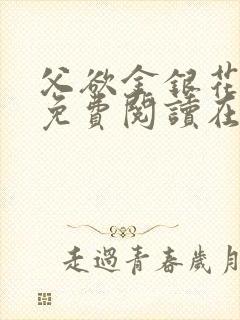 父欲金銀花
免費閱讀在
走過青春歲月